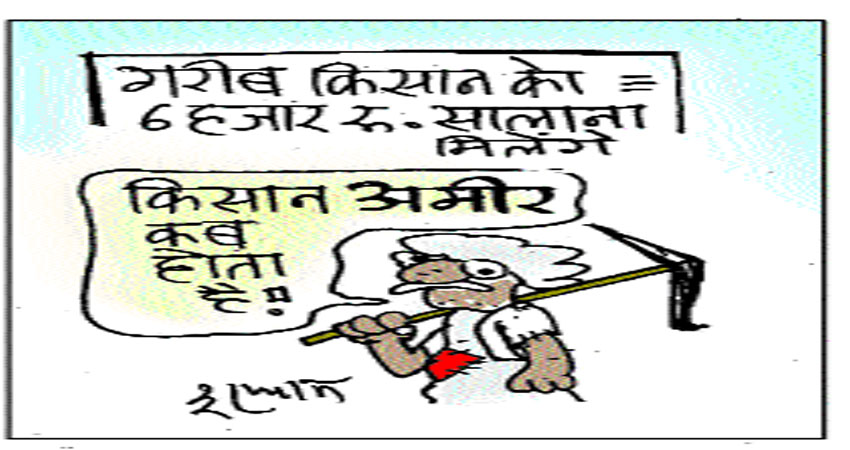 गरीब किसान को =
6 हजार रु. सालाना
मिलेंगे
किसान अमीर
कब
होता
है!!